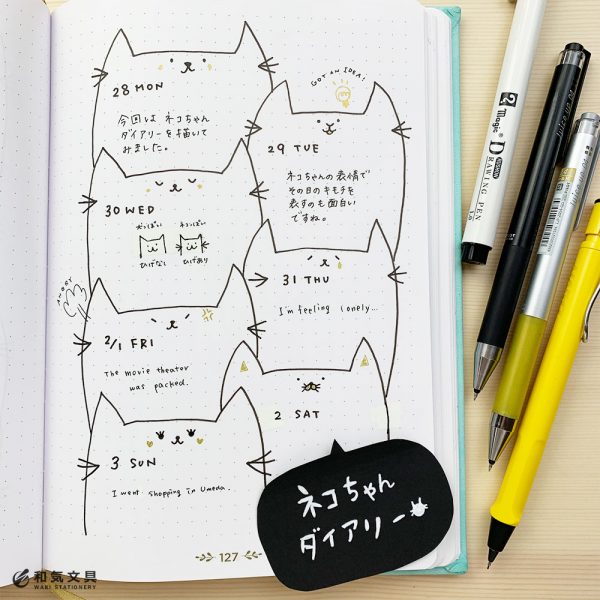 28 MON
今回は ネコちゃん
ダイアリーを描いて
みました。
GOT AN IDEA!
29 TUE
ネコちゃんの表情で
その日のキモチを
表すのも面白い
ですね。
30 WED
犬っぽい ネコっぽい
ひげなし ひげあり
31 THU
I'm feeling lonely...
ANGRY
2/1 FRI
The movie theater
was packed.
2 SAT
3 SUN
I went shopping in Umeda.
ネコちゃん
ダイアリー
127
和気文具
WAKI STATIONERY
Magic D
DRAWING PEN
Juice up 04
Juice up 04